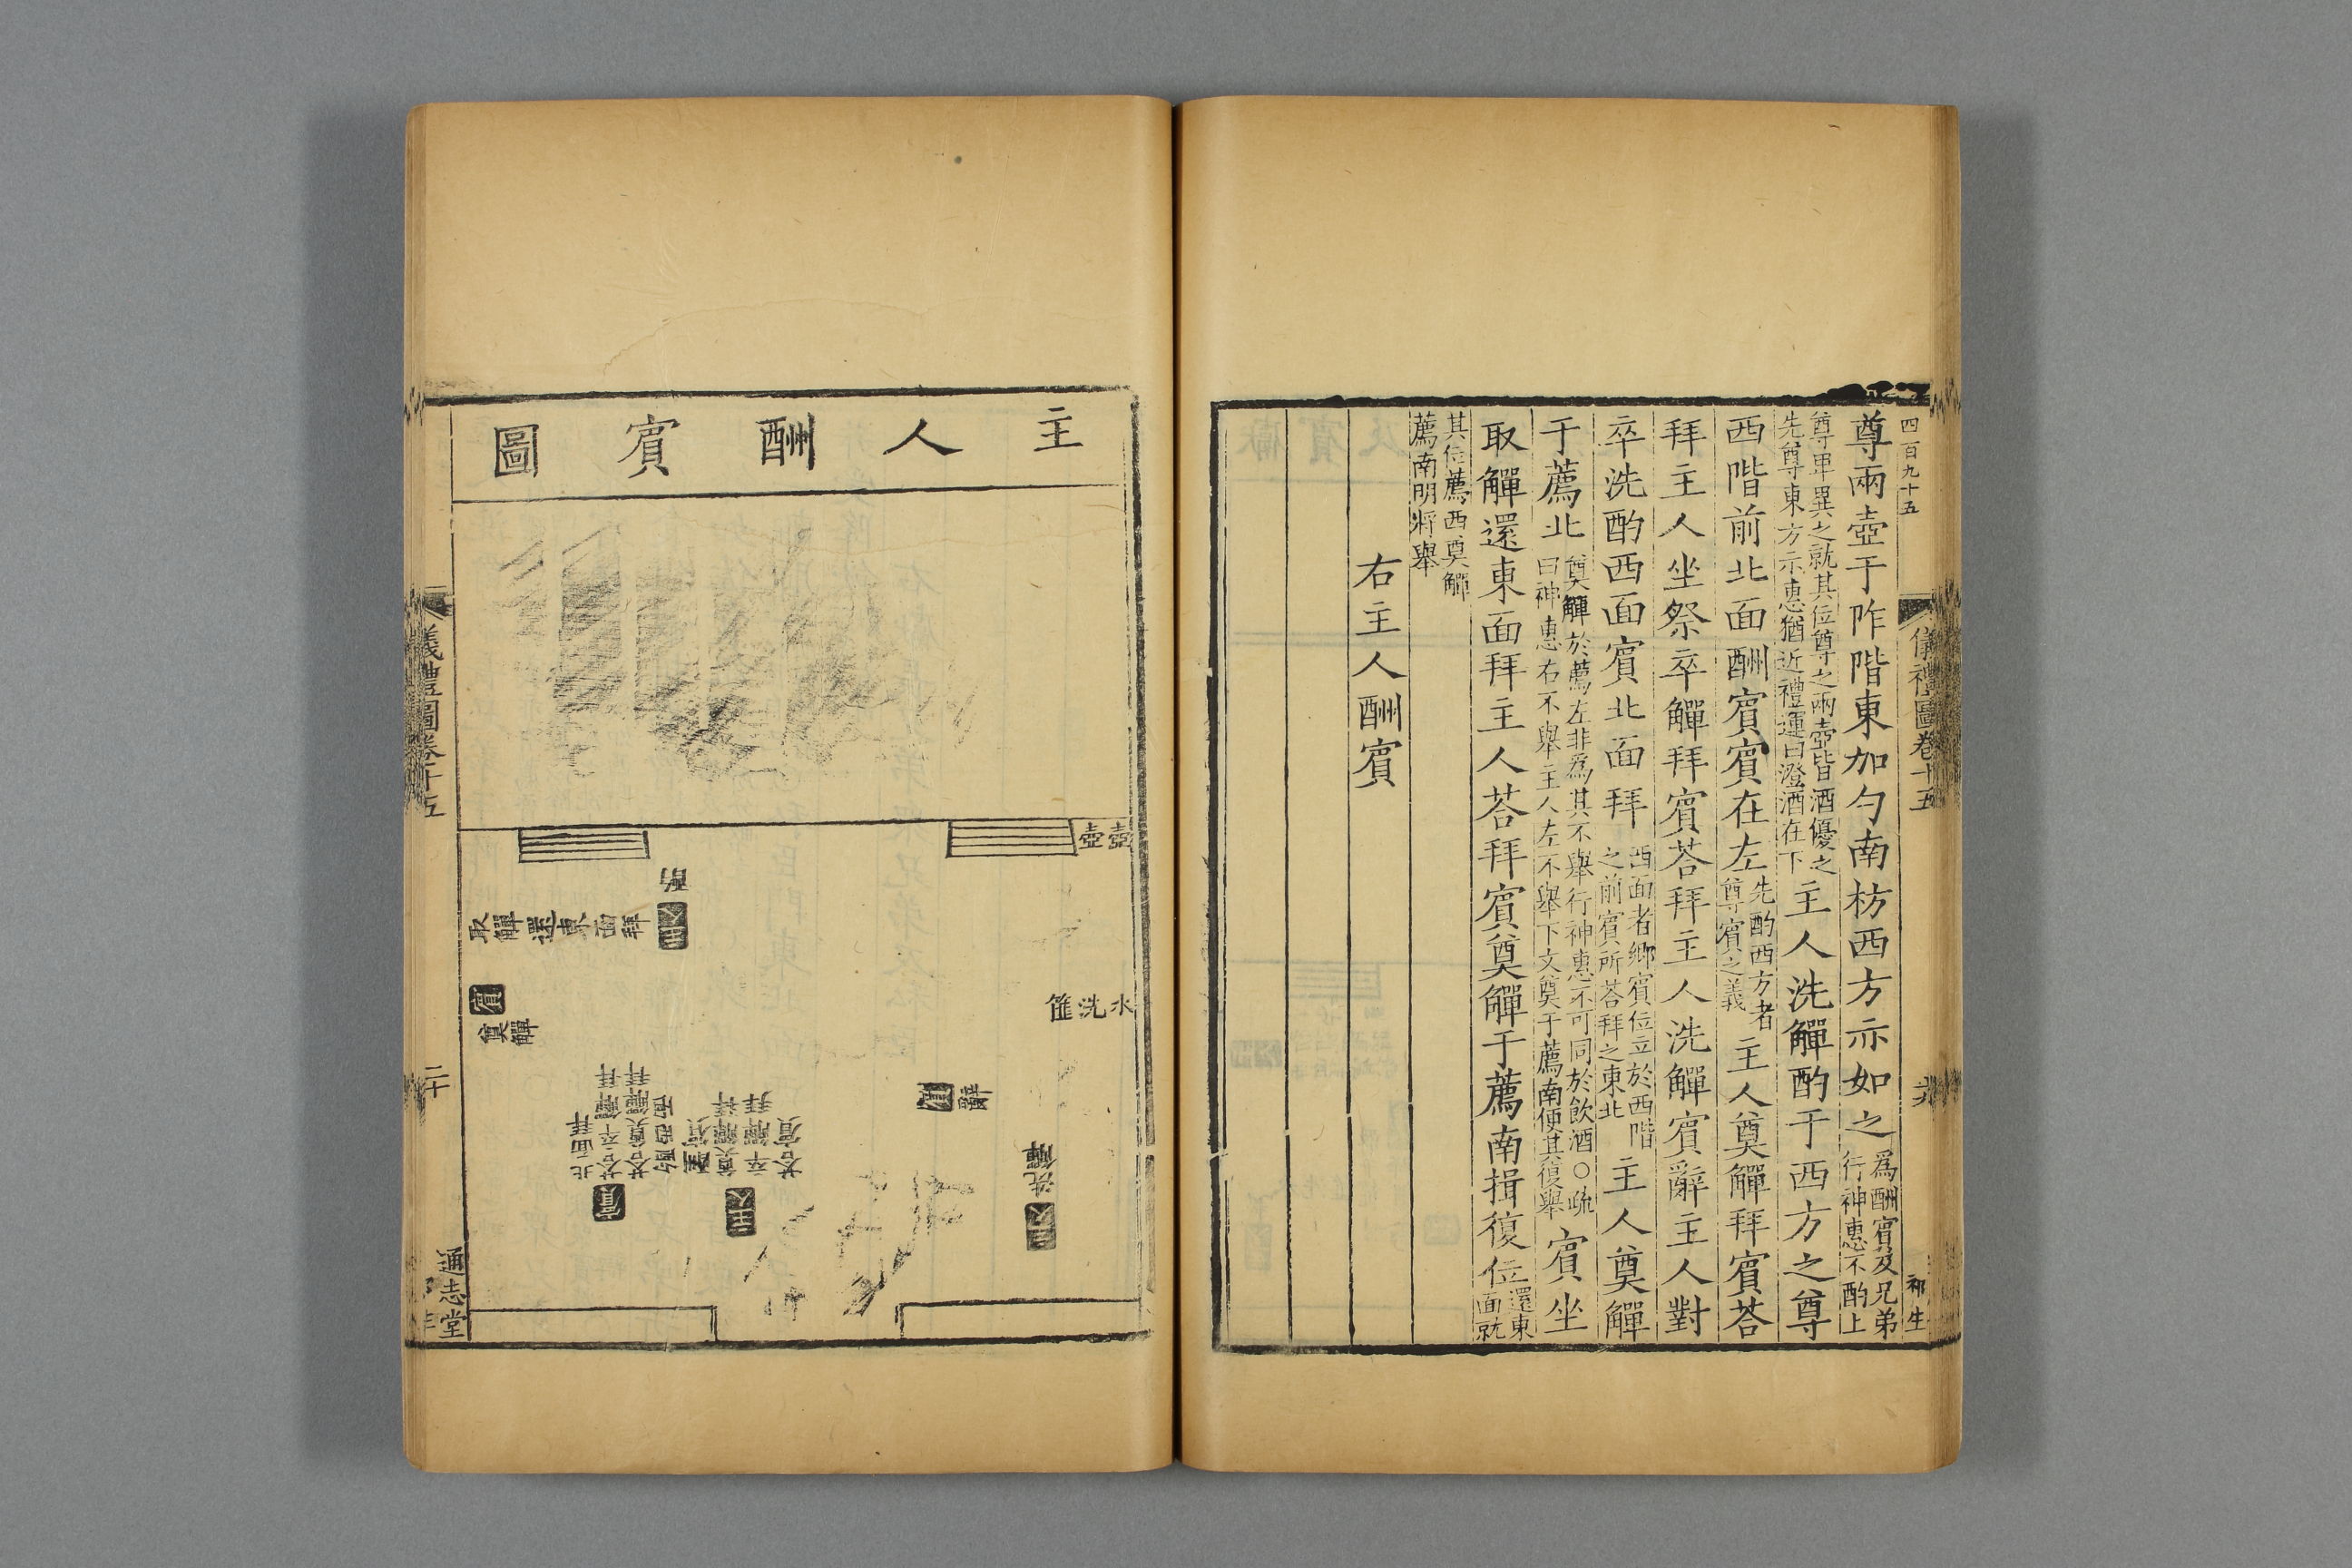 四百九十五
儀禮圖卷十五
祁生
尊兩壺于阼階東加勺南枋西方亦如之爲酬賓及兄弟行神惠不酌上
尊卑異之就其位尊之兩壺皆酒優之先尊東方示惠猶近禮運曰澄酒在下主人洗觶酌于西方之尊
西階前北面酬賓賓在左先酌西方者尊賓之義主人奠觶拜賓荅
拜主人坐祭卒觶拜賓荅拜主人洗觶賓辭主人對
卒洗酌西面賓北面拜西面者鄉賓位立於西階之前賓所荅拜之東北主人奠觶
于薦北奠觶於薦左非爲其不舉行神惠不可同於飲酒○疏曰神惠右不舉主人左不舉下文奠于薦南便其復舉賓坐
取觶還東面拜主人荅拜賓奠觶于薦南揖復位還東面就
其位薦西奠觶薦南明將舉
右主人酬賓
主人酬賓圖
壺
壺
酌
主人
取觶還東面拜
賓
奠觶
水
洗
篚
賓
辭
洗觶
主人
荅賓
卒觶拜
奠觶拜
酬賓
北面拜
賓
主人
儀禮圖卷十五
二十
通志堂